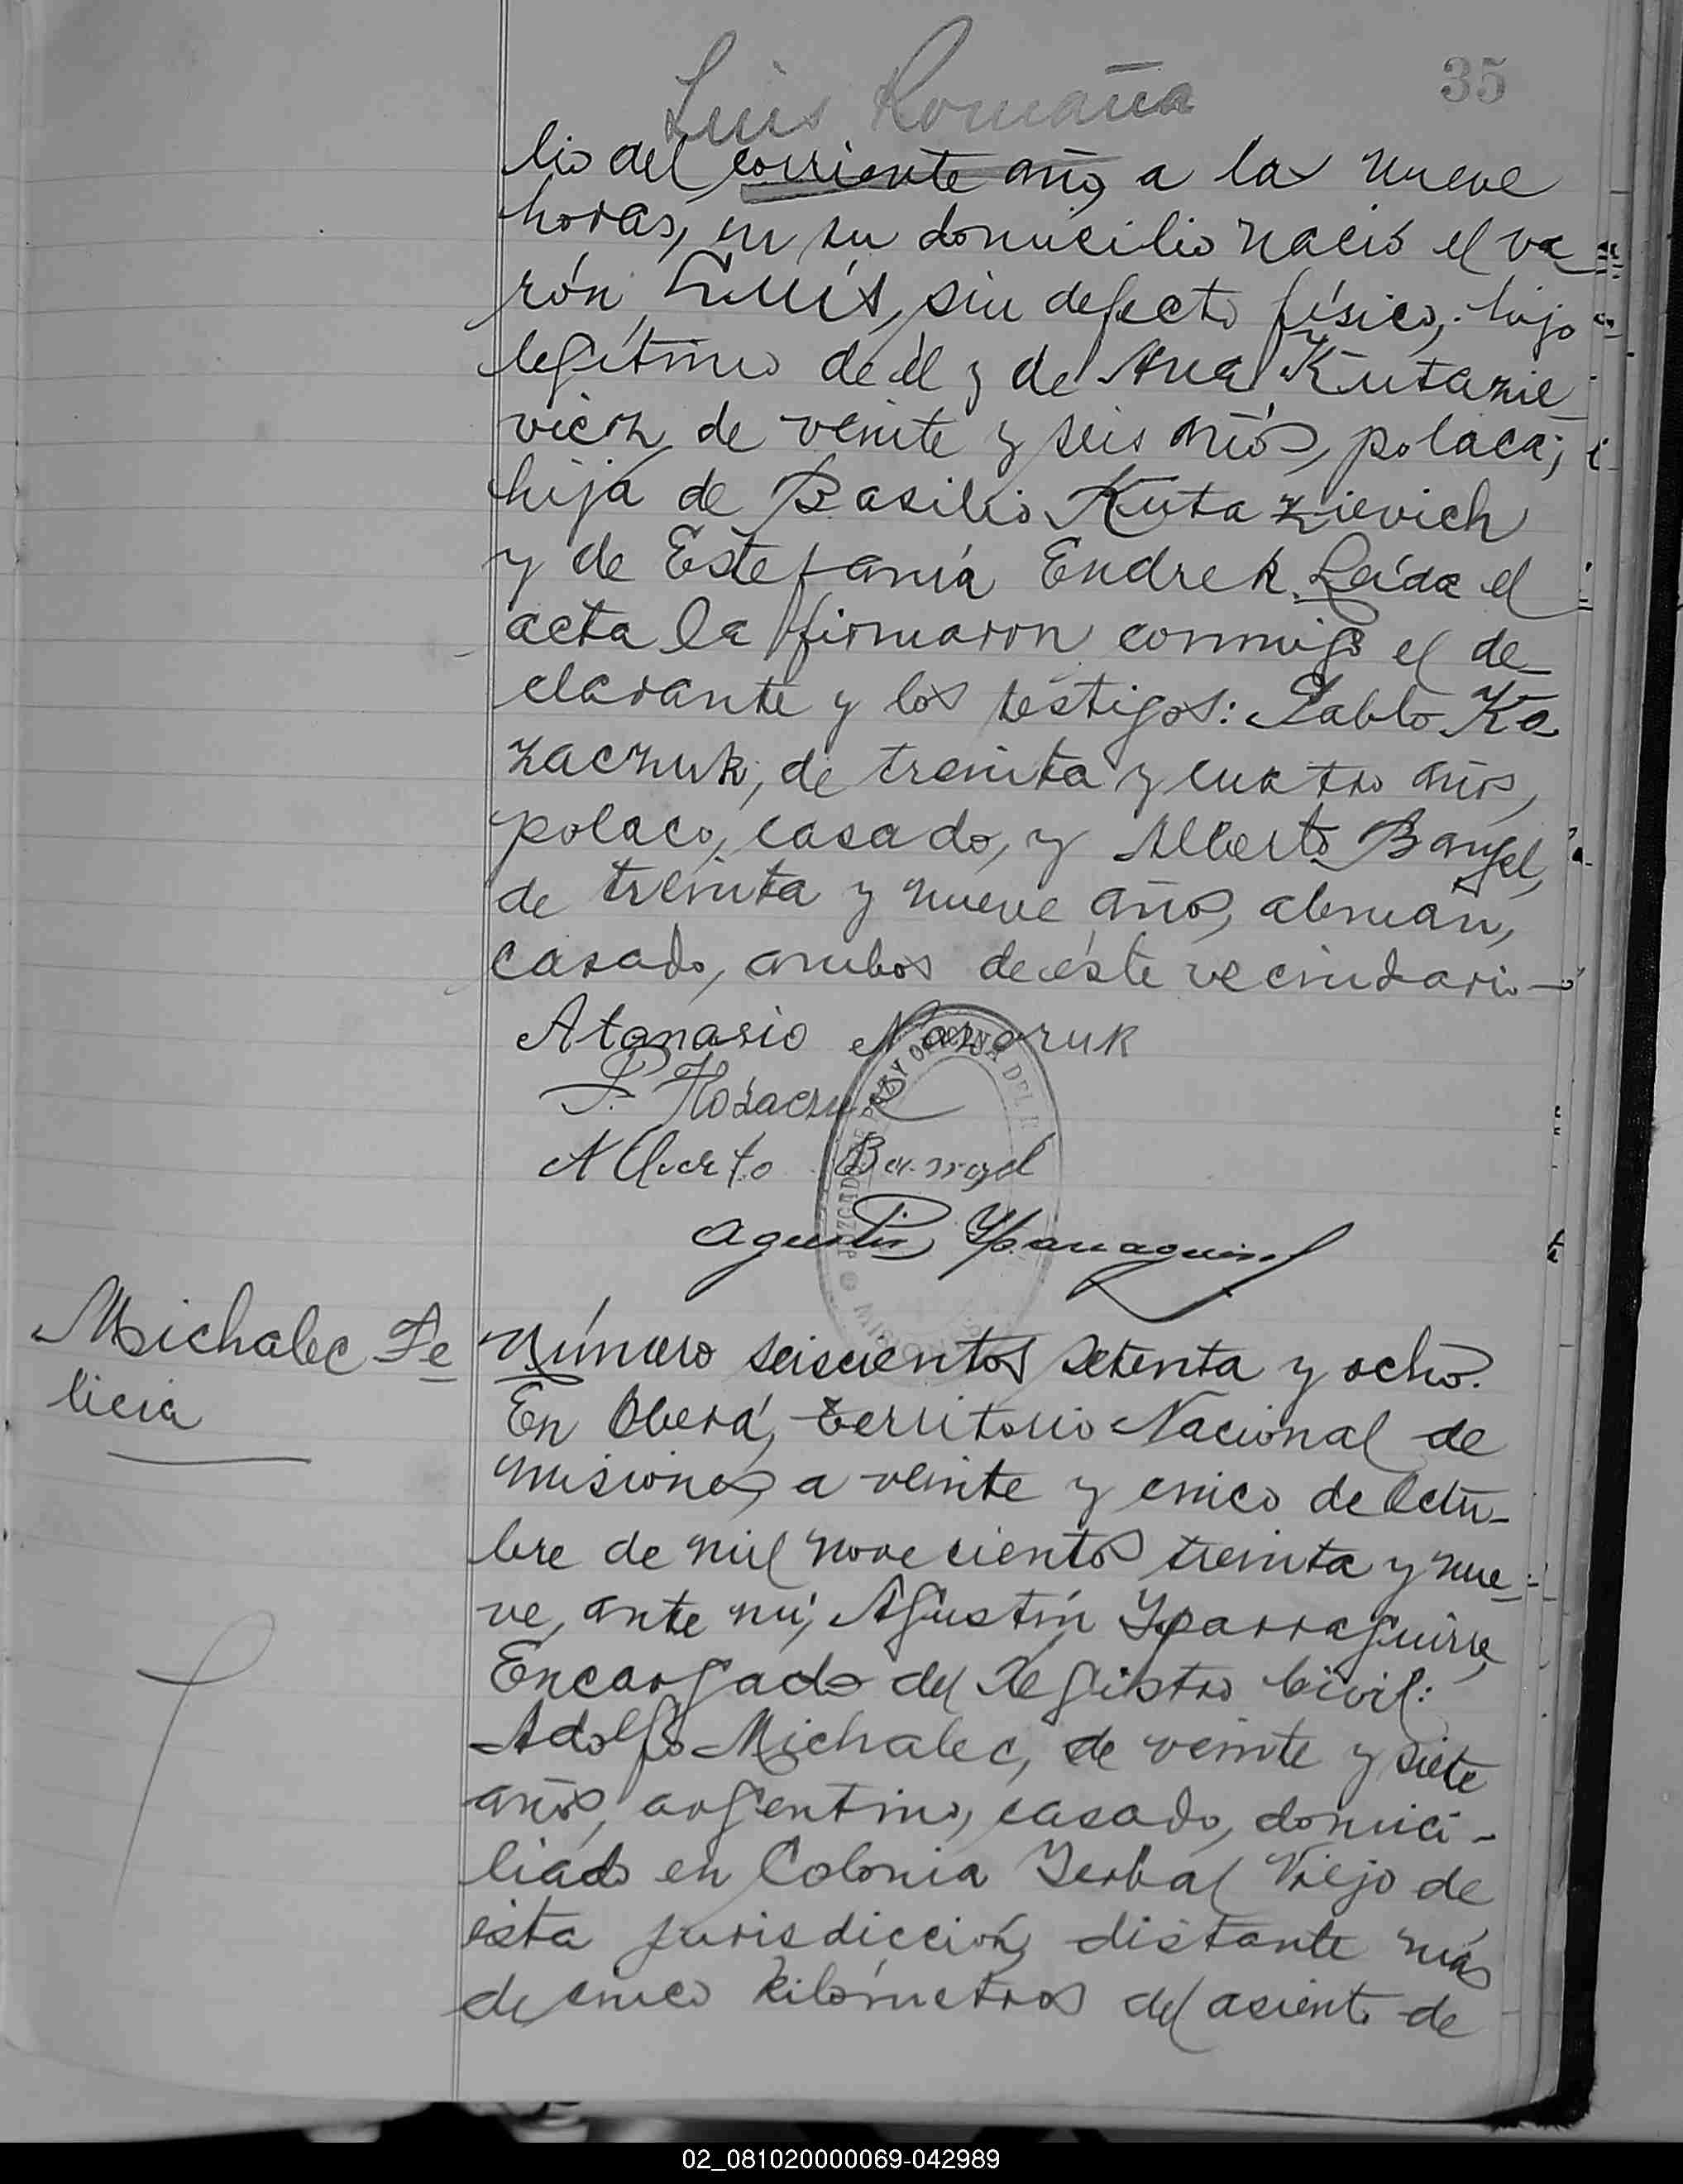 Luis Romaña
35
lio del corriente año, a las nueve
horas, en su domicilio nació el va-
rón Luis, sin defecto físico, hijo
legítimo de él y de Ana Kutazie-
vich, de veinte y seis años, polaca;
hija de Basilio Kutazievich
y de Estefanía Endrek. Leída el
acta la firmaron conmigo el de-
clarante y los testigos: Pablo Ko
zaczuk, de treinta y cuatro años,
polaco, casado, y Alberto Bangel,
de treinta y nueve años, alemán,
casado, ambos de éste vecindario—
Atanasio Nazaruk
P. Kozaczuk
Alberto Bangel
Agustin Yparraguirre
Michalec Fe
licia
Número seiscientos setenta y ocho.
En Oberá, territorio Nacional de
Misiones, a veinte y cinco de Octu-
bre de mil novecientos treinta y nue-
ve, ante mí, Agustín Yparraguirre,
Encargado del Registro Civil:
Adolfo Michalec, de veinte y siete
años, argentino, casado, domici-
liado en Colonia Yerbal Viejo de
esta jurisdicción, distante más
de cinco kilómetros del asiento de
02_081020000069-042989